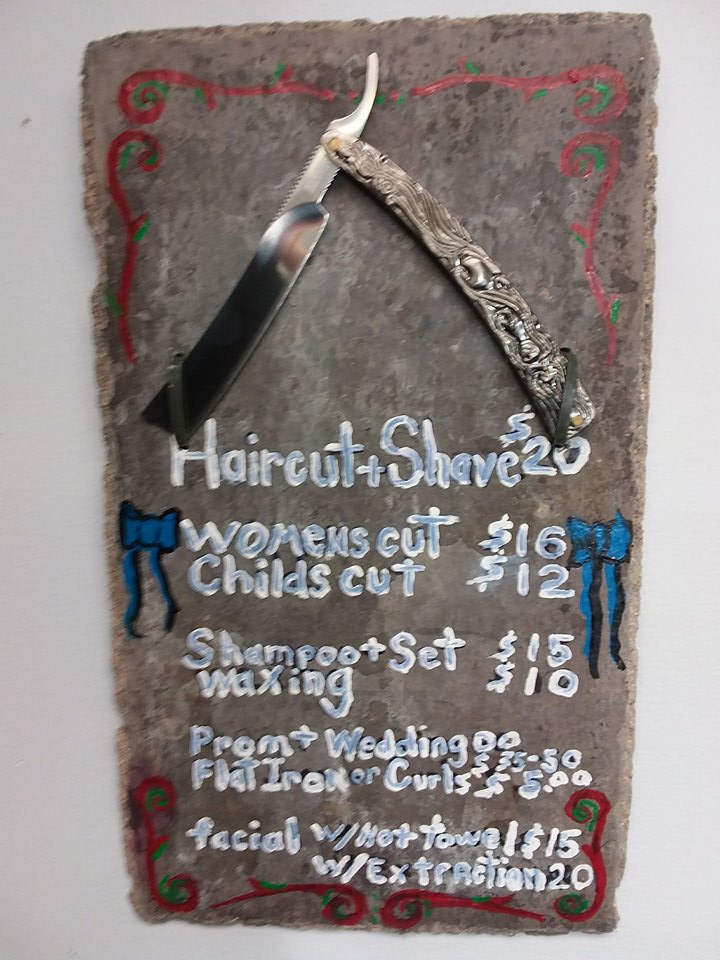 Haircut + Shave $20
WOMENS CUT $16
Childs cut $12
Shampoo + Set $15
waxing $10
Prom + Wedding Do $35-50
Flat Iron or Curls $5.00
facial w/Hot Towel $15
W/Extraction 20